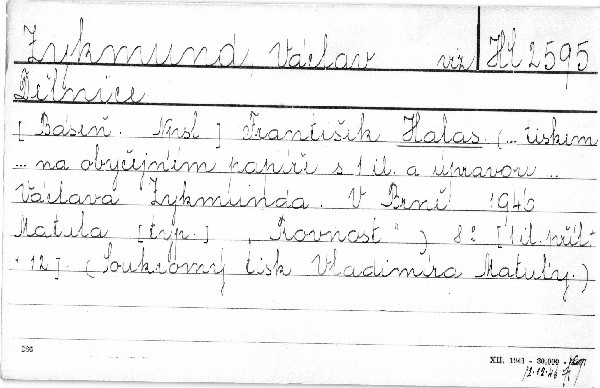 Zykmund Václav viz Hl 2595
Dělnice
[Báseň. Npsl] František Halas. (... tiskem
... na obyčejném papíře s 1 il. a úpravou ..
Václava Zykmunda. V Brně 1946
Matula [typ.] „Rovnost") 8° [1 il. příl.
12]. (Soukromý tisk Vladimíra Matuly.)
XII. 1941 - 30.000 -
12.12.46